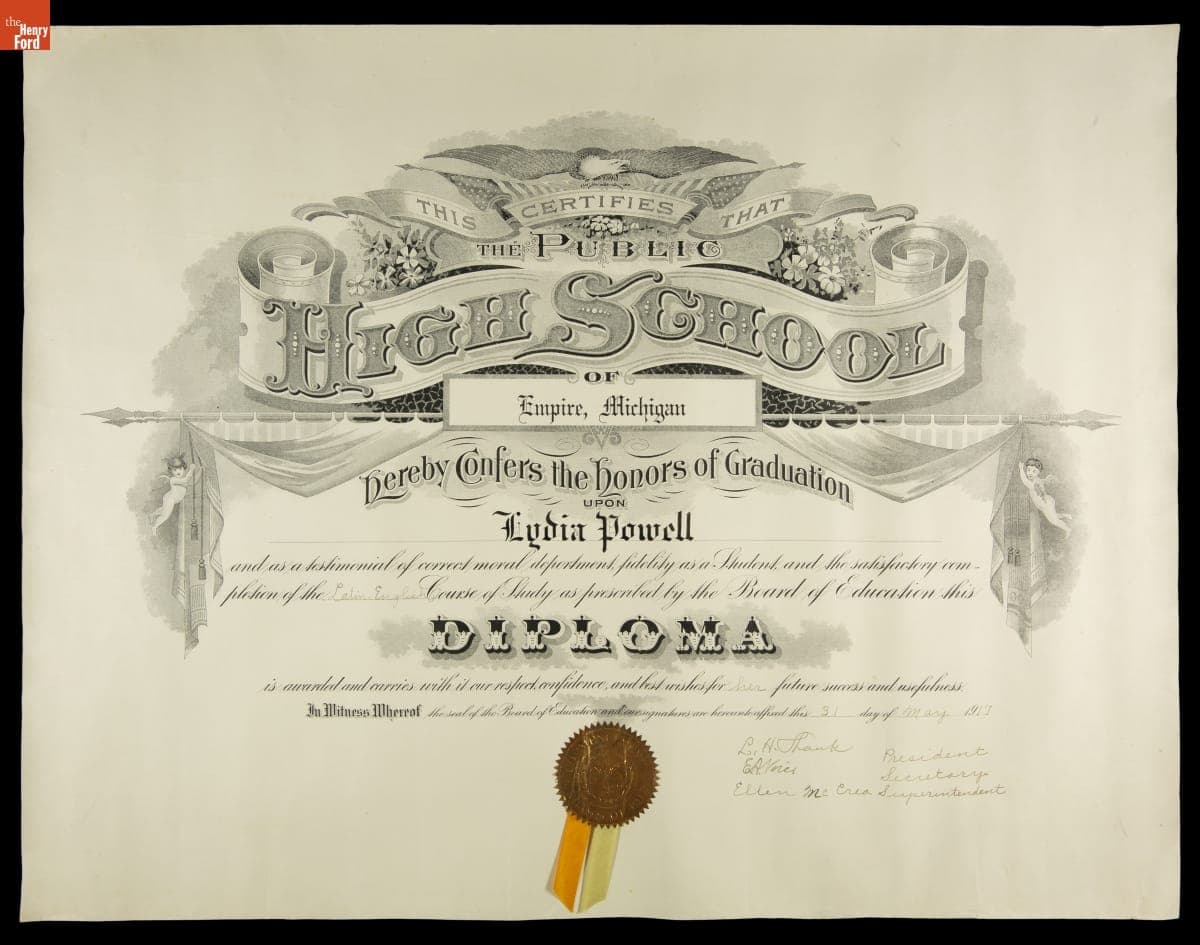 the
Henry
Ford
THIS CERTIFIES THAT
THE PUBLIC
HIGH SCHOOL
OF
Empire, Michigan
hereby Confers the honors of Graduation
UPON
Lydia Powell
and as a testimonial of correct moral deportment, fidelity as a Student, and the satisfactory com-
pletion of the Latin-English Course of Study as prescribed by the Board of Education this
DIPLOMA
is awarded and carries with it our respect, confidence, and best wishes for her future success and usefulness.
In Witness Whereof the seal of the Board of Education and our signatures are hereunto affixed this 31 day of May 1917
L. H. President
E.A. Secretary
Ellen Mc Crea Superintendent